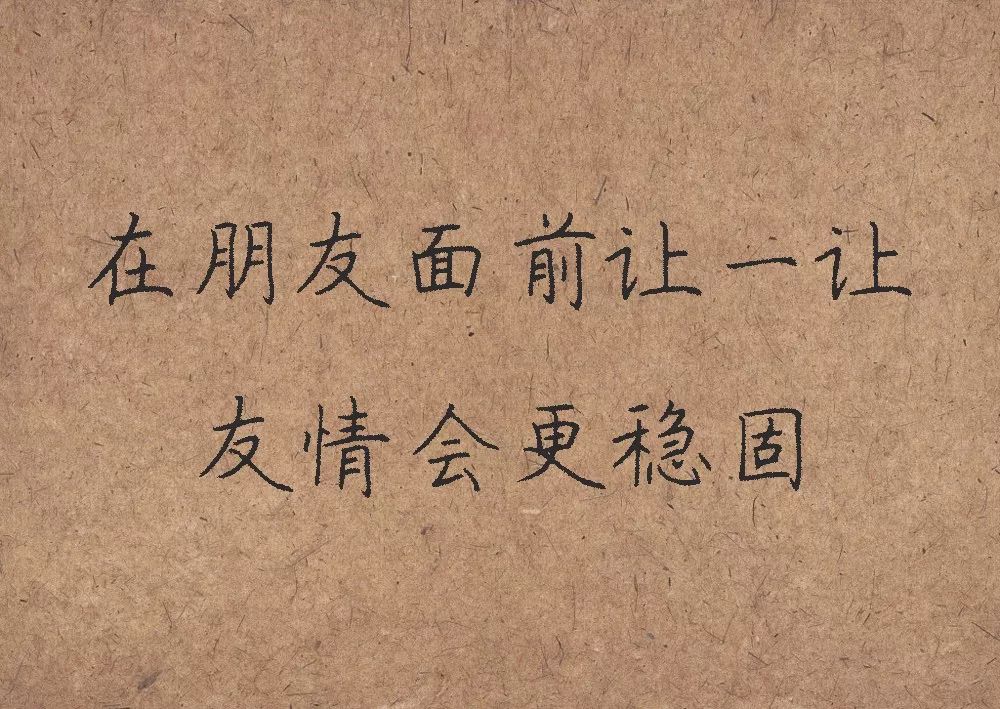 在朋友面前让一让
友情会更稳固